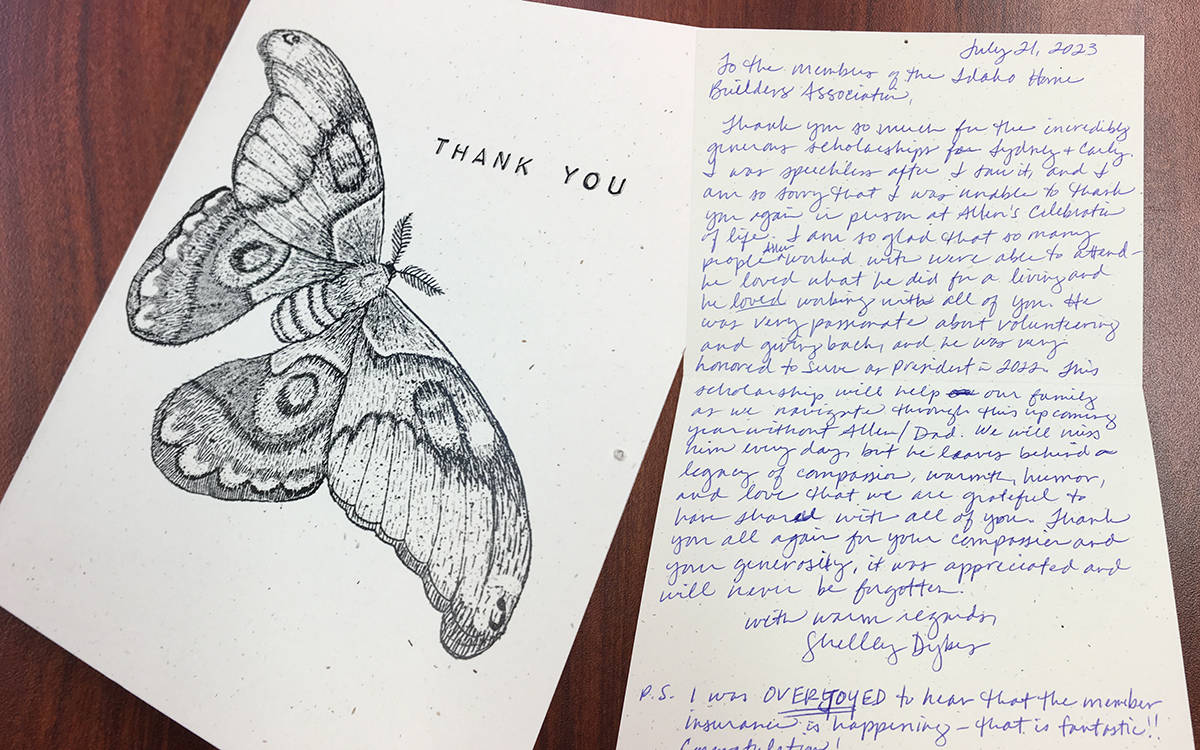 THANK YOU
July 21, 2023
To the members of the Idaho Home
Builders Association,
Thank you so much for the incredibly
generous scholarships for Sydney + Carly.
I was speechless after I saw it, and I
am so sorry that I was unable to thank
you again in person at Allen's Celebration
of life. I am so glad that so many
people Allen worked with were able to attend-
he loved what he did for a living and
he loved working with all of you. He
was very passionate about volunteering
and giving back, and he was very
honored to serve as President in 2022. This
scholarship will help our family
as we navigate through this upcoming
year without Allen/Dad. We will miss
him every day, but he leaves behind a
legacy of compassion, warmth, humor,
and love that we are grateful to
have shared with all of you. Thank
you all again for your compassion and
your generosity, it was appreciated and
will never be forgotten.
with warm regards,
Shelley Dykes
P.S. I was OVERJOYED to hear that the member
insurance is happening - that is fantastic!!
Congratulations!